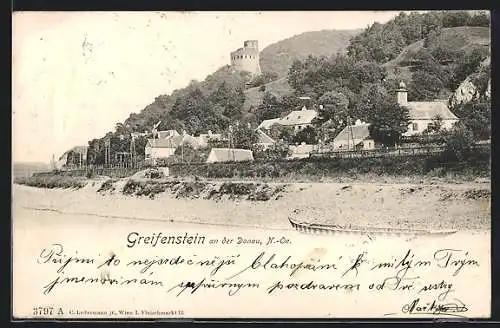 Greifenstein an der Donau, N.-Oe.
Přijmi to nejsrdečnější blahopřání k milým Tvým
jmeninám, s upřímným pozdravem od Tvé sestry
3797 A C. Ledermann jr., Wien I. Fleischmarkt 12.